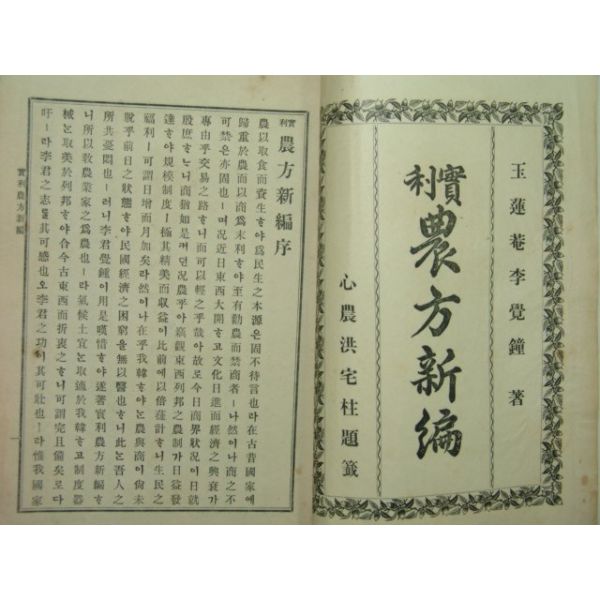 玉蓮菴李覺鐘 著
實利 農方新編
心農洪宅柱題籤
實利 農方新編序
農以取食而資生ᄒᆞ야爲民生之本源은固不待言也라在古昔國家에
歸重於農而以商爲末利ᄒᆞ야至有勸農而禁商者ㅣ나然이나商之不
可禁은亦固也ㅣ며況近日東西大開ᄒᆞ고文化日進而經濟之興衰가
專由乎交易之路ᄒᆞ니而可以輕之乎哉아故로今日商界狀況이日就
殷庶ᄒᆞᄂᆞ니商猶如是커던況農乎아竊觀東西列邦之農制가日益發
達ᄒᆞ야規模制度ㅣ極其精美而收益이比前에以倍蓰計ᄒᆞ니生民之
福利ㅣ可謂日增而月加矣라然이나在乎我韓ᄒᆞ야ᄂᆞᆫ農與商이尙未
脫乎前日之狀態ᄒᆞ야民國經濟之困窮을無以醫也ᄒᆞ니此ᄂᆞᆫ吾人之
所共憂悶也ㅣ러니李君覺鐘이用是嘆惜ᄒᆞ야遂著實利農方新編ᄒᆞ
니所以敎農業家之爲農也ㅣ라氣候土宜ᄂᆞᆫ取適於我韓ᄒᆞ고制度器
械ᄂᆞᆫ取美於列邦ᄒᆞ야合今古東西而折衷之ᄒᆞ니可謂完且備矣로다
吁ㅣ라李君之志ᄅᆞᆯ其可感也오李君之功이其可壯也ㅣ라惟我國家
實利農方新編
一